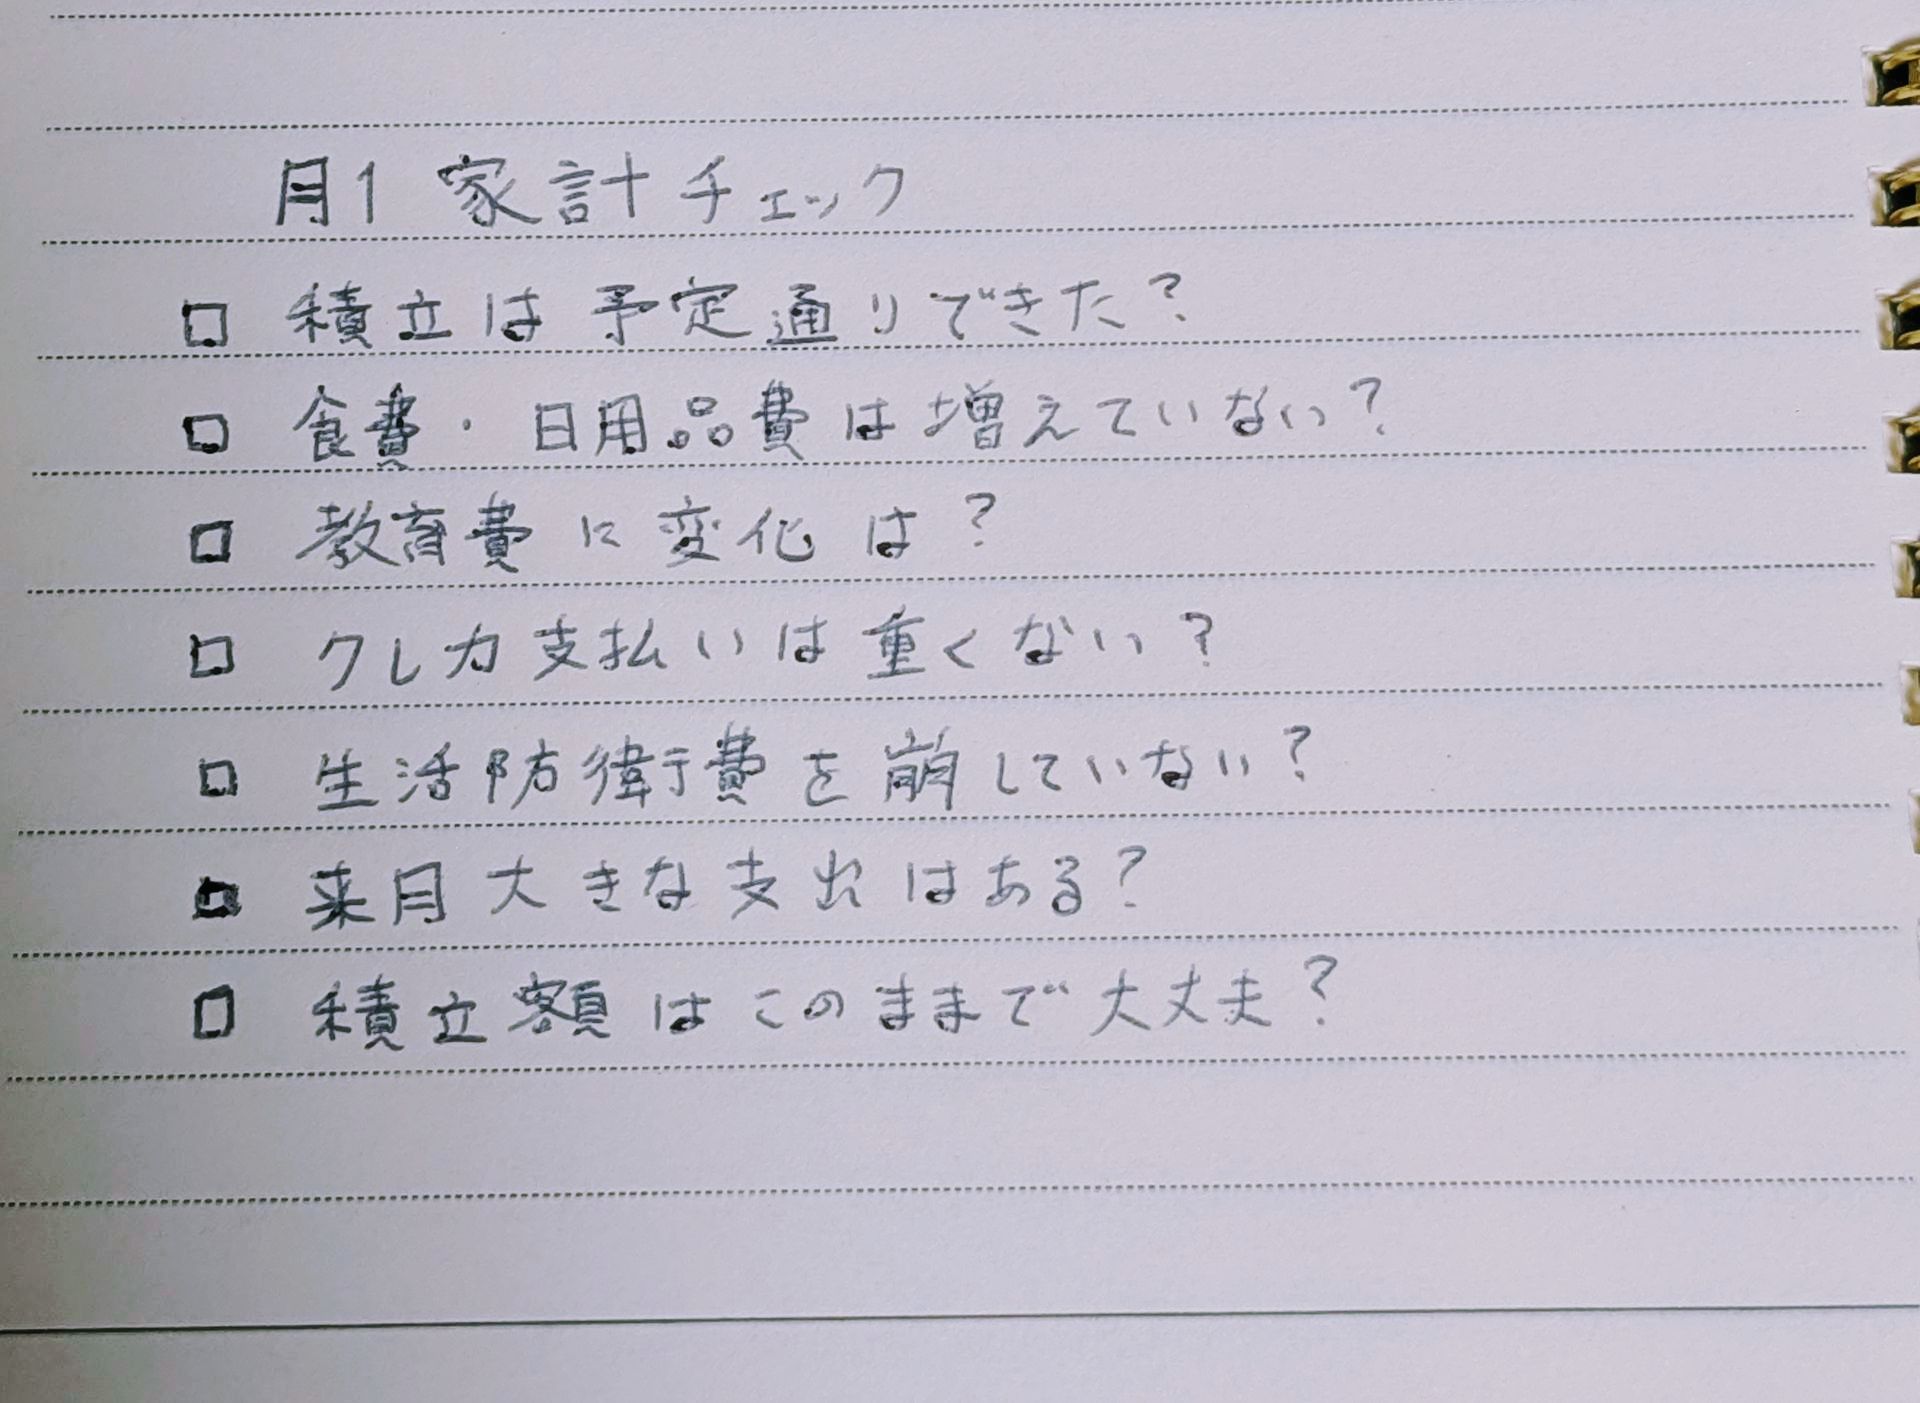 月1 家計チェック
□ 積立は予定通りできた?
□ 食費・日用品費は増えていない?
□ 教育費に変化は?
□ クレカ支払いは重くない?
□ 生活防衛費を崩していない?
□ 来月大きな支出はある?
□ 積立額はこのままで大丈夫?